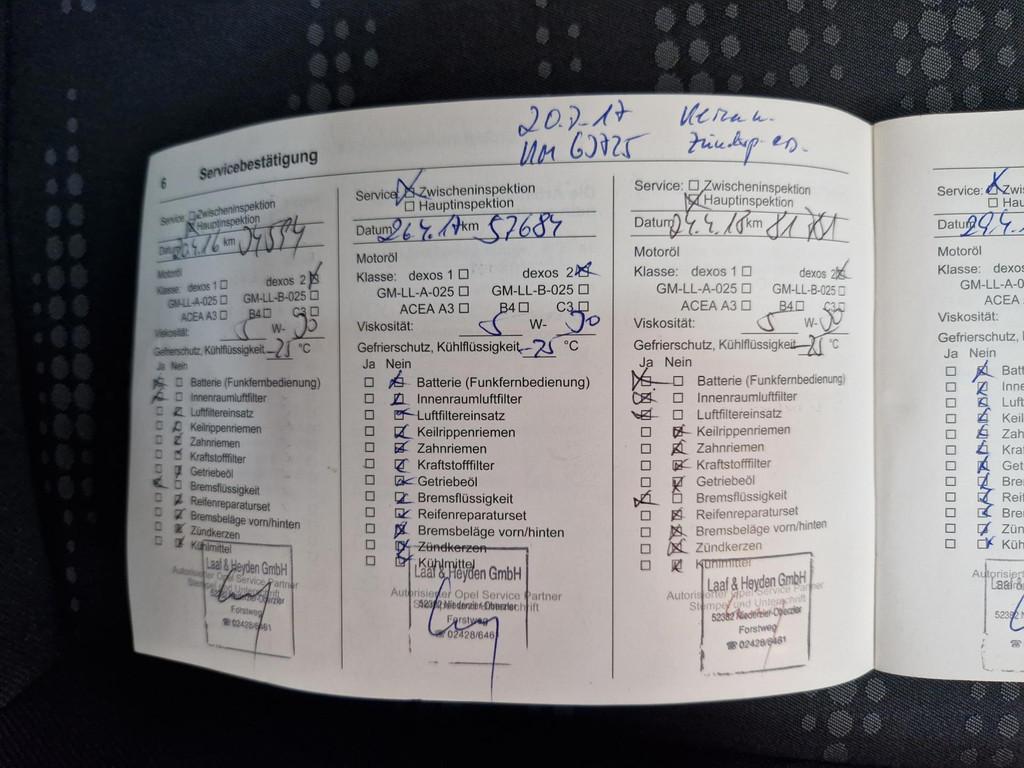 20.7.17
KM 63725
Zündkerz. ers.
6 Servicebestätigung
Service: Zwischeninspektion
Hauptinspektion
Datum 20.4.16 km 34594
Motoröl
Klasse: dexos 1 dexos 2
GM-LL-A-025 GM-LL-B-025
ACEA A3 B4 C3
Viskosität: 5 W- 30
Gefrierschutz, Kühlflüssigkeit -25 °C
Ja Nein
Batterie (Funkfernbedienung)
Innenraumluftfilter
Luftfiltereinsatz
Keilrippenriemen
Zahnriemen
Kraftstofffilter
Getriebeöl
Bremsflüssigkeit
Reifenreparaturset
Bremsbeläge vorn/hinten
Zündkerzen
Kühlmittel
Autorisierter Opel Service Partner
Stempel und Unterschrift
Laaf & Heyden GmbH
52382 Niederzier-Oberzier
Forstweg
☎ 02428/6461
Service: Zwischeninspektion
Hauptinspektion
Datum 26.4.17 km 57684
Motoröl
Klasse: dexos 1 dexos 2
GM-LL-A-025 GM-LL-B-025
ACEA A3 B4 C3
Viskosität: 5 W- 30
Gefrierschutz, Kühlflüssigkeit -25 °C
Ja Nein
Batterie (Funkfernbedienung)
Innenraumluftfilter
Luftfiltereinsatz
Keilrippenriemen
Zahnriemen
Kraftstofffilter
Getriebeöl
Bremsflüssigkeit
Reifenreparaturset
Bremsbeläge vorn/hinten
Zündkerzen
Kühlmittel
Autorisierter Opel Service Partner
Stempel und Unterschrift
Laaf & Heyden GmbH
52382 Niederzier-Oberzier
Forstweg
☎ 02428/6461
Service: Zwischeninspektion
Hauptinspektion
Datum 24.4.18 km
Motoröl
Klasse: dexos 1 dexos 2
GM-LL-A-025 GM-LL-B-025
ACEA A3 B4 C3
Viskosität: 5 W- 30
Gefrierschutz, Kühlflüssigkeit -25 °C
Ja Nein
Batterie (Funkfernbedienung)
Innenraumluftfilter
Luftfiltereinsatz
Keilrippenriemen
Zahnriemen
Kraftstofffilter
Getriebeöl
Bremsflüssigkeit
Reifenreparaturset
Bremsbeläge vorn/hinten
Zündkerzen
Kühlmittel
Autorisierter Opel Service Partner
Stempel und Unterschrift
Laaf & Heyden GmbH
52382 Niederzier-Oberzier
Forstweg
☎ 02428/6461
Service: Zwis
Haup
Datum
Motoröl
Klasse: de
GM-LL-A
ACEA
Viskosität:
Gefrierschutz, K
Ja Nein
Batt
Inne
Luft
Keil
Zah
Kraf
Get
Bre
Reif
Bre
Zün
Küh
Autorisiert
Laaf
52382
☎